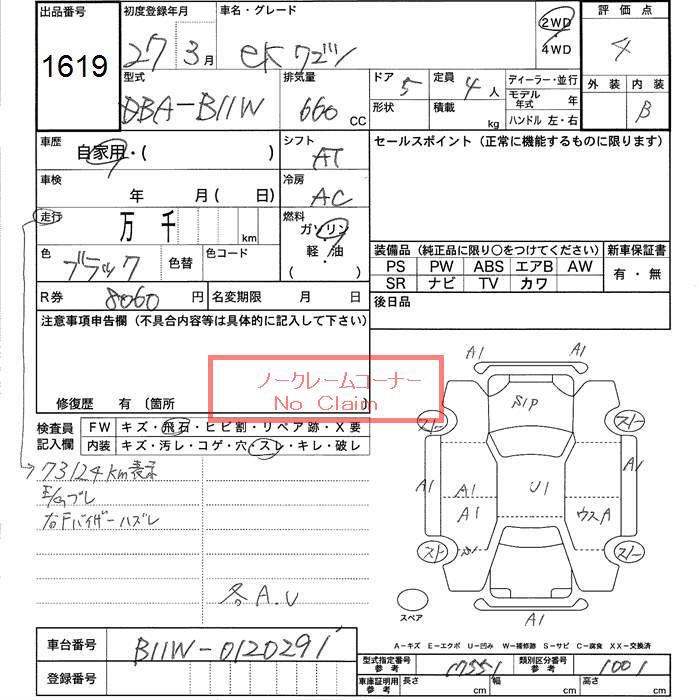 出品番号 初度登録年月 車名・グレード 2WD 評価点
1619 27 3月 ekワゴン ・4WD 4
型式 排気量 ドア 5 定員 4人 ディーラー・並行 外装 内装
DBA-B11W 660 CC 形状 積載 kg モデル年式 年 B
ハンドル 左・右
車歴 自家用・( ) シフト AT セールスポイント(正常に機能するものに限ります)
車検 年 月( 日) 冷房 AC
走行 万 千 km 燃料 ガソリン・軽・油 ( )
色 ブラック 色替 色コード 装備品(純正品に限り○をつけてください) 新車保証書
PS PW ABS エアB AW 有・無
SR ナビ TV カワ
R券 8060円 名変期限 月 日 後日品
注意事項申告欄(不具合内容等は具体的に記入して下さい)
ノークレームコーナー
No Claim
修復歴 有 〔箇所
検査員記入欄 FW キズ・飛石・ヒビ割・リペア跡・X要
内装 キズ・汚レ・コゲ・穴・スレ・キレ・破レ
73124km表示
E/gブレ
右Fバイザーハズレ
各A.U
A1 A1
S1P
スレ スレ
A1 A1 A1 U1 ウスA A1
スト スレ
A1
スペア
A-キズ E-エクボ U-凹み W-補修跡 S-サビ C-腐食 XX-交換済
車台番号 B11W-0120291
型式指定番号 参考 17551 類別区分番号 参考 1001
登録番号 車庫証明用 参考 長さ cm 幅 cm 高さ cm